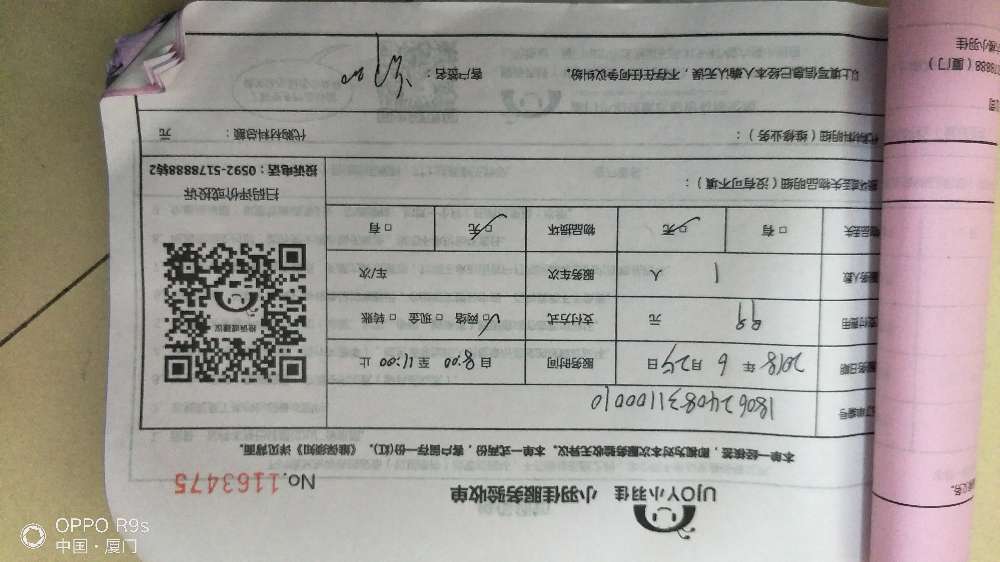 UJOY小羽佳 小羽佳服务验收单
No.1163475
本单一经核签,即视为对本次服务验收无异议。本单一式两份,客户留存一份(红)。《维保须知》详见背面。
订单编号 180624083110010
服务日期 2018 年 6 月 25 日 服务时间 自 8:00 至 11:00 止
支付费用 99 元 支付方式 ☑网络 □现金 □转账
服务人数 1 人 服务车次 车/次
物品丢失 □有 ☑无 物品损坏 ☑无 □有
投诉或建议
扫码评价或投诉
投诉电话:0592-5178888转2
损坏或丢失物品明细(没有可不填):
代购材料明细(维修业务): 代购材料总额: 元
以上填写信息已经本人确认无误,不存在任何争议纠纷。 客户签名:
78888(厦门)
小羽佳
OPPO R9s
中国·厦门